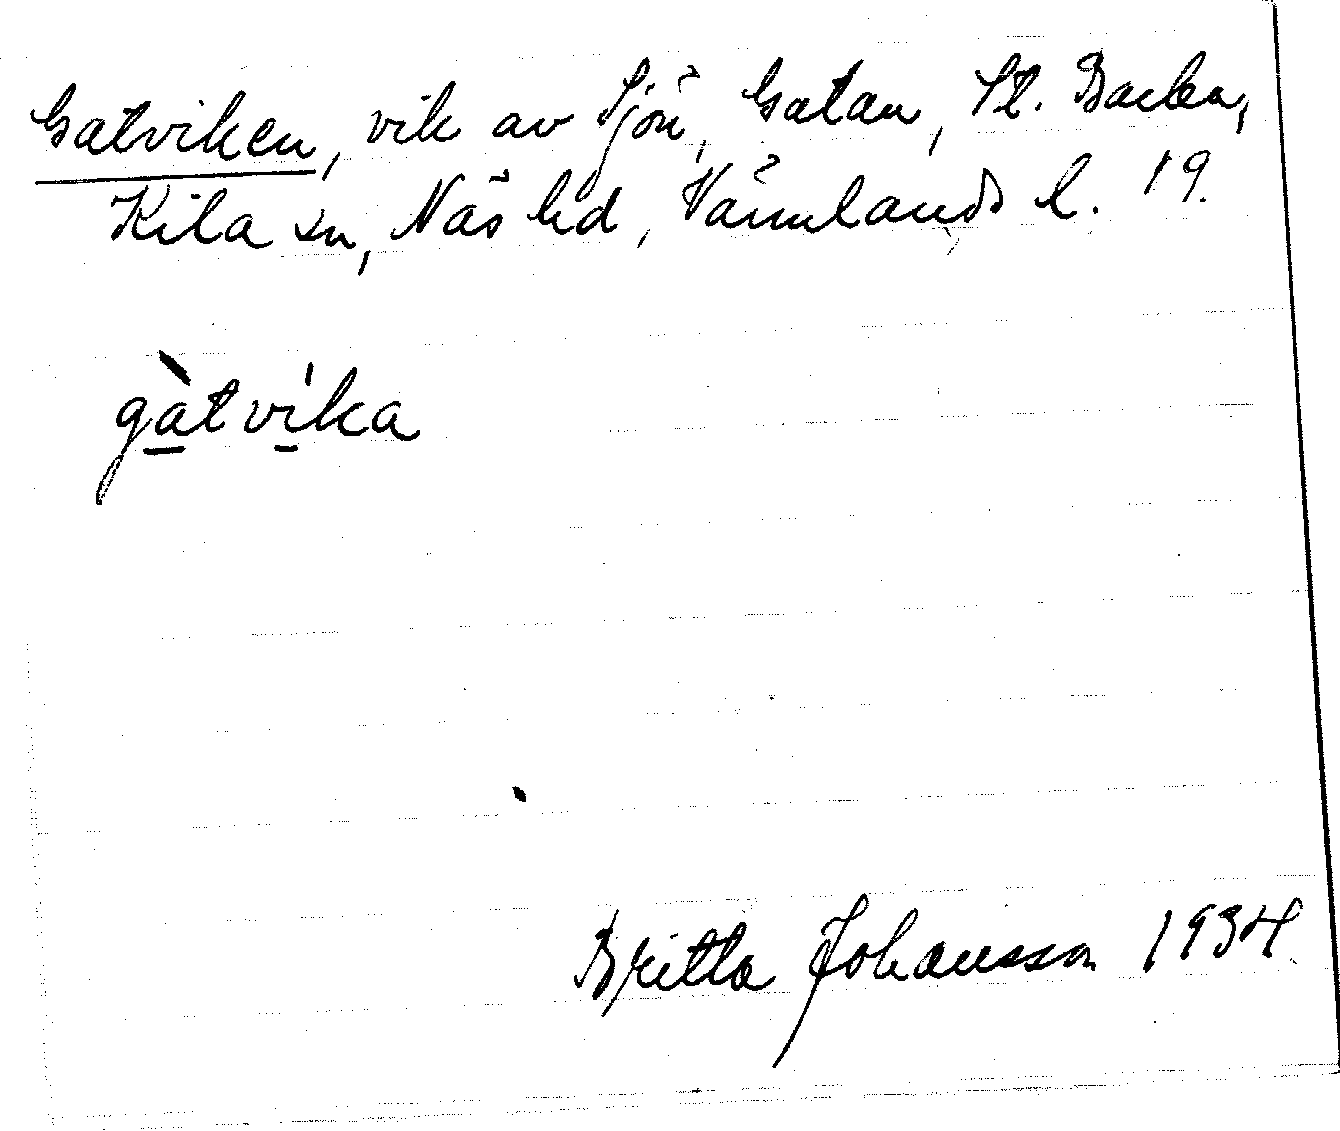 Gatviken, vik av Sjön, Gatan, St. Backa,
Kila sn, Näs hd, Värmlands l. 19.
gàtvíka
Britta Johansson 1934